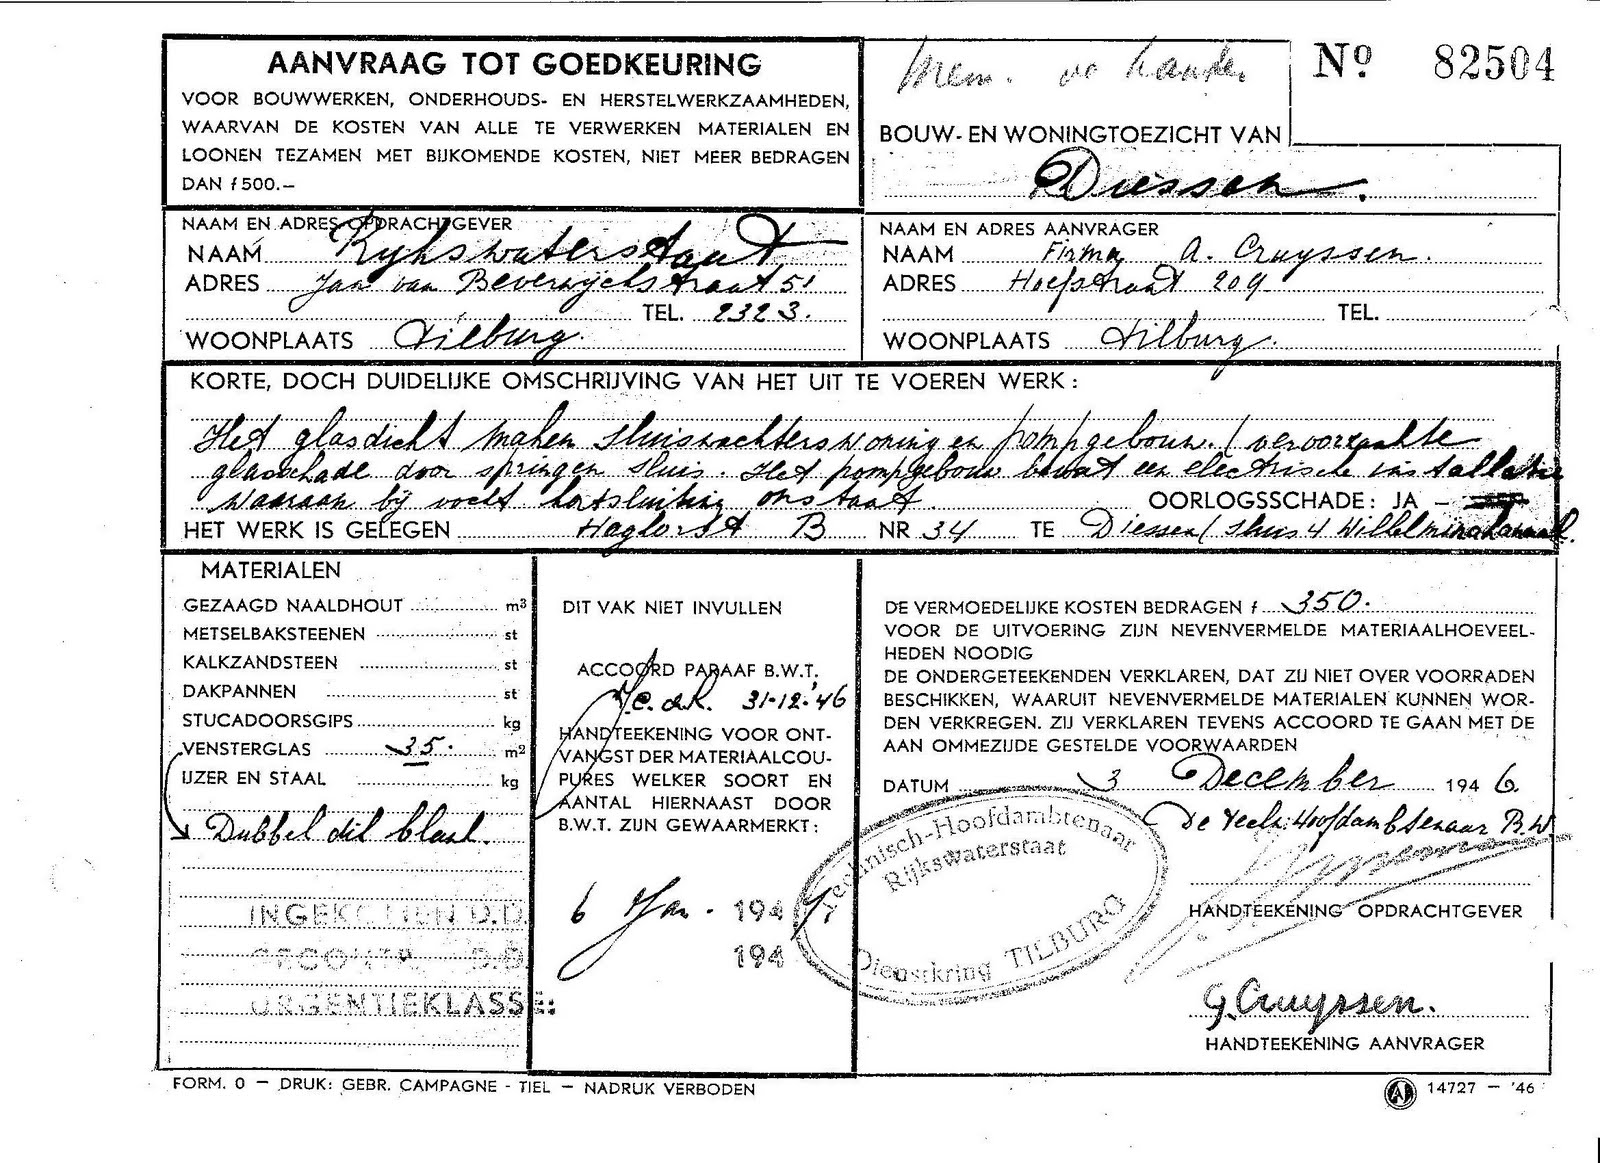 AANVRAAG TOT GOEDKEURING
VOOR BOUWWERKEN, ONDERHOUDS- EN HERSTELWERKZAAMHEDEN,
WAARVAN DE KOSTEN VAN ALLE TE VERWERKEN MATERIALEN EN
LOONEN TEZAMEN MET BIJKOMENDE KOSTEN, NIET MEER BEDRAGEN
DAN f 500.—
No. 82504
BOUW- EN WONINGTOEZICHT VAN
Diessen.
NAAM EN ADRES OPDRACHTGEVER
NAAM Rijkswaterstaat
ADRES Jan van Beverwijckstraat 51
TEL. 2323.
WOONPLAATS Tilburg.
NAAM EN ADRES AANVRAGER
NAAM Firma A. Cruyssen.
ADRES Hoefstraat 209
TEL.
WOONPLAATS Tilburg.
KORTE, DOCH DUIDELIJKE OMSCHRIJVING VAN HET UIT TE VOEREN WERK:
Het glasdicht maken sluiswachterswoning en pompgebouw. (veroorzaakte
glasschade door springen sluis. Het pompgebouw bevat een electrische installatie
waaraan bij vocht kortsluiting onstaat.
OORLOGSSCHADE: JA —
HET WERK IS GELEGEN Haghorst B NR 34 TE Diessen / sluis 4 Wilhelminakanaal.
MATERIALEN
GEZAAGD NAALDHOUT m3
METSELBAKSTEENEN st
KALKZANDSTEEN st
DAKPANNEN st
STUCADOORSGIPS kg
VENSTERGLAS 35. m2
IJZER EN STAAL kg
Dubbel dik blank.
INGEKOMEN D.D.
GECONTR. D.D.
URGENTIEKLASSE:
DIT VAK NIET INVULLEN
ACCOORD PARAAF B.W.T.
31-12-'46
HANDTEEKENING VOOR ONT-
VANGST DER MATERIAALCOU-
PURES WELKER SOORT EN
AANTAL HIERNAAST DOOR
B.W.T. ZIJN GEWAARMERKT:
6 Jan. 1947
194
DE VERMOEDELIJKE KOSTEN BEDRAGEN f 350.
VOOR DE UITVOERING ZIJN NEVENVERMELDE MATERIAALHOEVEEL-
HEDEN NOODIG
DE ONDERGETEEKENDEN VERKLAREN, DAT ZIJ NIET OVER VOORRADEN
BESCHIKKEN, WAARUIT NEVENVERMELDE MATERIALEN KUNNEN WOR-
DEN VERKREGEN. ZIJ VERKLAREN TEVENS ACCOORD TE GAAN MET DE
AAN OMMEZIJDE GESTELDE VOORWAARDEN
DATUM 3 December 1946.
De Tech: Hoofdambtenaar B.W.
Technisch-Hoofdambtenaar
Rijkswaterstaat
Dienstkring TILBURG
HANDTEEKENING OPDRACHTGEVER
G. Cruyssen.
HANDTEEKENING AANVRAGER
FORM. O — DRUK: GEBR. CAMPAGNE - TIEL — NADRUK VERBODEN
14727 — '46